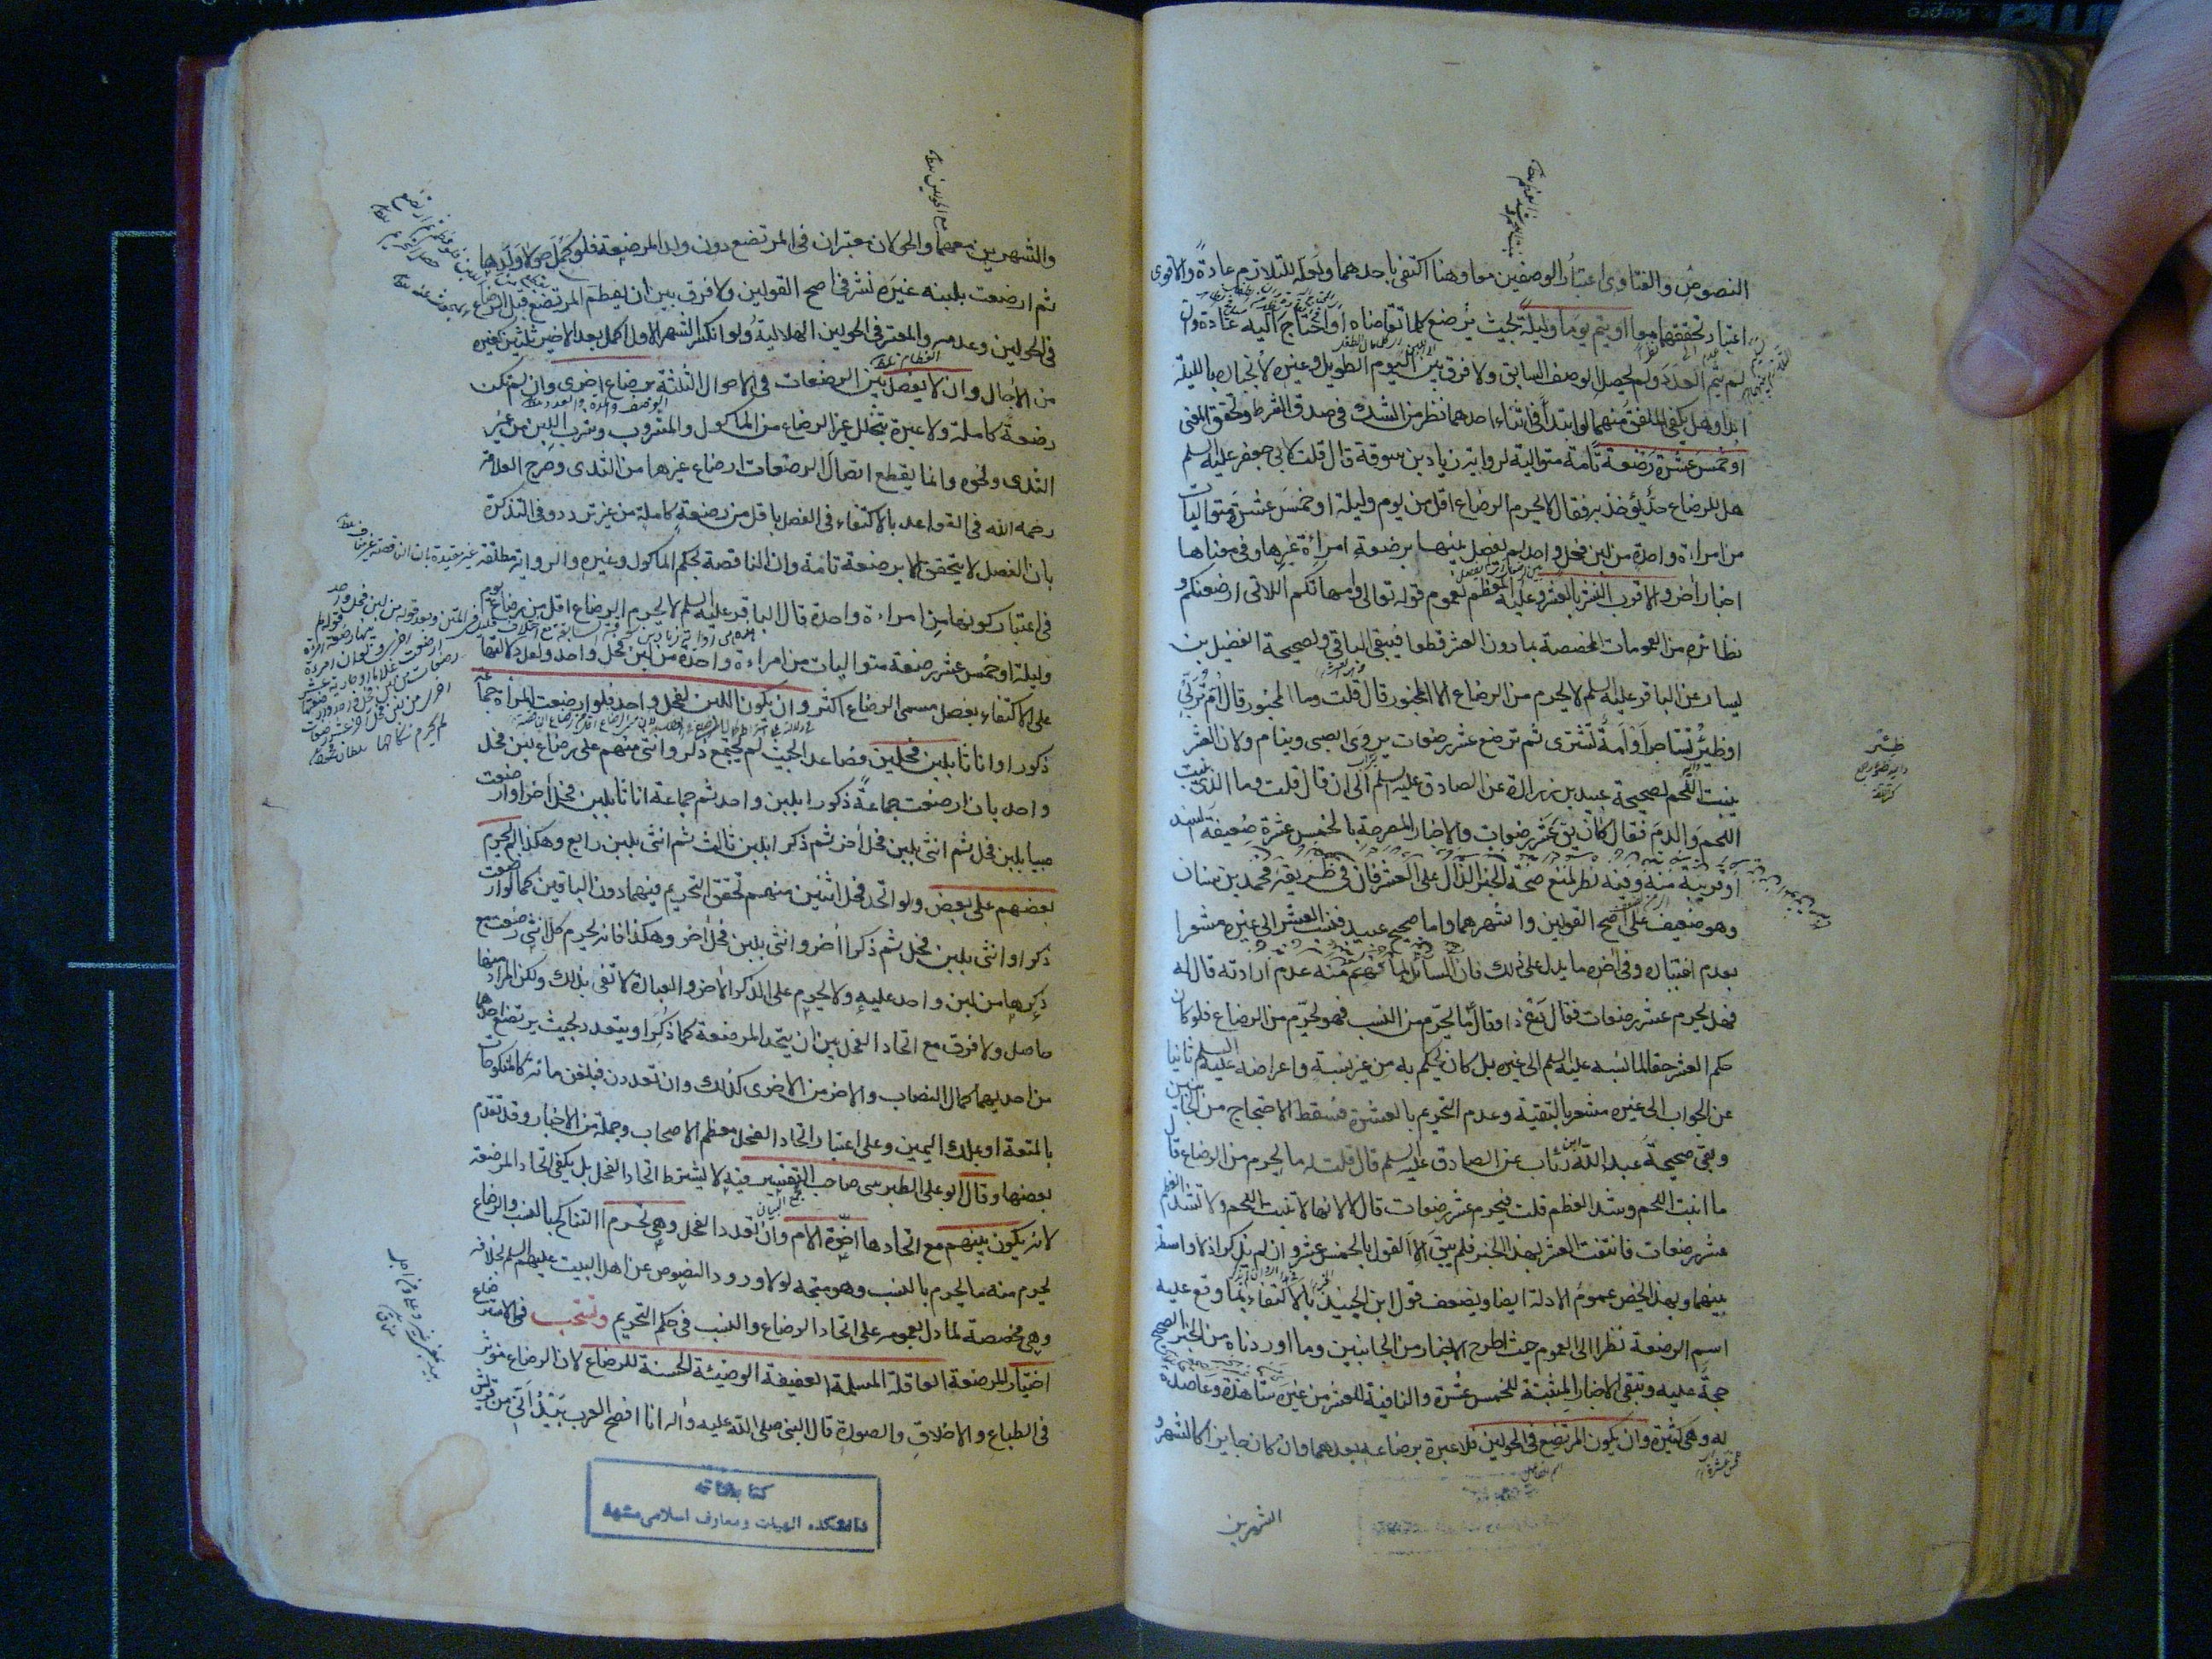 النصوص والفتاوى اعتبار الوصفين معا وهنا اكتفى باحدهما ولعله للتلازم عادة والاقوى
اعتبار تحققهما معا او يتم يوما وليلة بحيث يرضع كلما تقاضاه او احتاج اليه عادة وان
لم يتم العدد ولم يحصل الوصف السابق ولا فرق بين اليوم الطويل وغيره لانجباره بالليلة
ابدا وهل يكفى الملفق منهما لو ابتدأ فى اثناء احدهما نظر من الشك فى صدق الشرط وتحقق المعنى
او خمس عشرة رضعة تامة متوالية لرواية زياد بن سوقة قال قلت لابى جعفر عليه السلم
هل للرضاع حد يؤخذ به فقال لا يحرم الرضاع اقل من يوم وليلة او خمس عشرة متواليات
من امراءة واحدة من لبن فحل واحد لم يفصل بينها برضعة امراءة غيرها وفى معناها
اخبار اخر والاقرب النشر بالعشر وعليه المعظم لعموم قوله تعالى وامهاتكم اللاتى ارضعنكم و
نظائره من العمومات المخصصة بما دون العشر قطعا فيبقى الباقى ولصحيحة الفضيل بن
يسار عن الباقر عليه السلم لا يحرم من الرضاع الا المجبور قال قلت وما المجبور قال ام تربى
او ظئر تستاجر او امة تشترى ثم ترضع عشر رضعات يروى الصبى وينام ولان العشر
ينبت اللحم لصحيحة عبيد بن زرارة عن الصادق عليه السلم الى ان قال قلت وما الذى ينبت
اللحم والدم فقال كان يق عشر رضعات والاخبار المصرحة بالخمس عشرة ضعيفة السند
او قريبة منه وفيه نظر لمنع صحة الخبر الدال على العشر فان فى طريقه محمد بن سنان
وهو ضعيف على اصح القولين واشهرهما واما صحيح عبيد فنسب العشر الى غيره مشعرا
بعدم اختياره وفى آخره ما يدل على ذلك فان السائل لما فهم منه عدم ارادته قال له
فهل يحرم عشر رضعات فقال دع ذا وقال ما يحرم من النسب فهو يحرم من الرضاع فلو كان
حكم العشر حقا لما نسبه عليه السلم الى غيره بل كان يحكم به من غير نسبة واعراضه عليه السلم ثانيا
عن الجواب الى غيره مشعر بالتقية وعدم التحريم بالعشرة فسقط الاحتجاج من الجانبين
وبقى صحيحة عبد الله بن رئاب عن الصادق عليه السلم قال قلت له ما يحرم من الرضاع قال
ما انبت اللحم وشد العظم قلت فيحرم عشر رضعات قال لا لانها لا تنبت اللحم ولا تشد العظم
عشر رضعات فانتفت العشر بهذا الخبر فلم يبق الا القول بالخمس عشر وان لم يذكر اذ لا واسطة
بينهما وبهذا يخص عموم الادلة ايضا ويضعف قول ابن الجنيد بالاكتفاء بما وقع عليه
اسم الرضعة نظرا الى العموم حيث اطرح الاخبار من الجانبين وما اوردناه من الخبر الصحيح
حجة عليه وتبقى الاخبار المثبتة للخمس عشرة والنافية للعشر من غيره شاهدة وعاضدة
له وهى كثيرة وان يكون المرتضع فى الحولين فلا عبرة برضاعه بعدهما وان كان جايزا كالشهر و
الشهرين
ظئر
والشهرين معهما والحولان معتبران فى المرتضع دون ولد المرضعة فلو كمل حولا ولدها
ثم ارضعت بلبنه غيره نشر فى اصح القولين ولا فرق بين ان يفطم المرتضع قبل الرضاع
فى الحولين وعدمه والمعتبر فى الحولين الهلالية ولو انكسر الشهر الاول اكمل بعد الاخير ثلثين كغيره
من الاجال وان لا يفصل بين الرضعات فى الاحوال الثلثة برضاع اخرى وان لم تكن
رضعة كاملة ولا عبرة بتخلل غير الرضاع من الماكول والمشروب وشرب اللبن من غير
الثدى ونحوه وانما يقطع اتصال الرضعات ارضاع غيرها من الثدى وصرح العلامة
رحمه الله فى القواعد بالاكتفاء فى الفصل باقل من رضعة كاملة من غير تردد وفى التذكرة
بان الفصل لا يتحقق الا برضعة تامة وان الناقصة بحكم الماكول وغيره والرواية مطلقة
فى اعتبار كونها من امراءة واحدة قال الباقر عليه السلم لا يحرم الرضاع اقل من رضاع يوم
وليلة او خمس عشر رضعة متواليات من امراءة واحدة من لبن فحل واحد ولعل دلالتها
على الاكتفاء بفصل مسمى الرضاع اكثر وان يكون اللبن لفحل واحد فلو ارضعت المراة جماعة
ذكورا او اناثا بلبن فحلين فصاعدا بحيث لم يجتمع ذكر وانثى منهم على رضاع لبن فحل
واحد بان ارضعت جماعة ذكورا بلبن واحد ثم جماعة اناثا بلبن فحل آخر او ارضعت
صبيا بلبن فحل ثم انثى بلبن فحل آخر ثم ذكرا بلبن ثالث ثم انثى بلبن رابع وهكذا لم يحرم
بعضهم على بعض ولو اتحد فحل اثنين منهم تحقق التحريم فيهما دون الباقين كما لو ارضعت
ذكرا وانثى بلبن فحل ثم ذكرا آخر وانثى بلبن فحل آخر وهكذا فانه يحرم كل انثى رضعت مع
ذكرها من لبن واحد عليه ولا يحرم على الذكر الآخر والعبارة لا تفى بذلك ولكن المراد منها
حاصل ولا فرق مع اتحاد الفحل بين ان يتحد المرضعة كما ذكرا ويتعدد بحيث يرتضع احدهما
من احديهما كمال النصاب والاخر من الاخرى كذلك وان تعددن فبلغن مائة كالمنكوحات
بالمتعة او بملك اليمين وعلى اعتبار اتحاد الفحل معظم الاصحاب وجملة من الاخبار وقد تقدم
بعضها وقال ابو على الطبرسى صاحب التفسير فيه لا يشترط اتحاد الفحل بل يكفى اتحاد المرضعة
لانه يكون بينهم مع اتحادها اخوة الام وان تعدد الفحل وهى تحرم التناكح بالنسب والرضاع
يحرم منه ما يحرم بالنسب وهو متجه لولا ورود النصوص عن اهل البيت عليهم السلم بخلافه
وهى مخصصة لما دل بعمومه على اتحاد الرضاع والنسب فى حكم التحريم ويستحب فى الاسترضاع
اختيار المرضعة العاقلة المسلمة العفيفة الوضيئة الحسنة للرضاع لان الرضاع مؤثر
فى الطباع والاخلاق والصورة قال النبى صلى الله عليه وآله انا افصح العرب بيد انى من قريش
كتابخانه
دانشكده الهيات ومعارف اسلامى مشهد